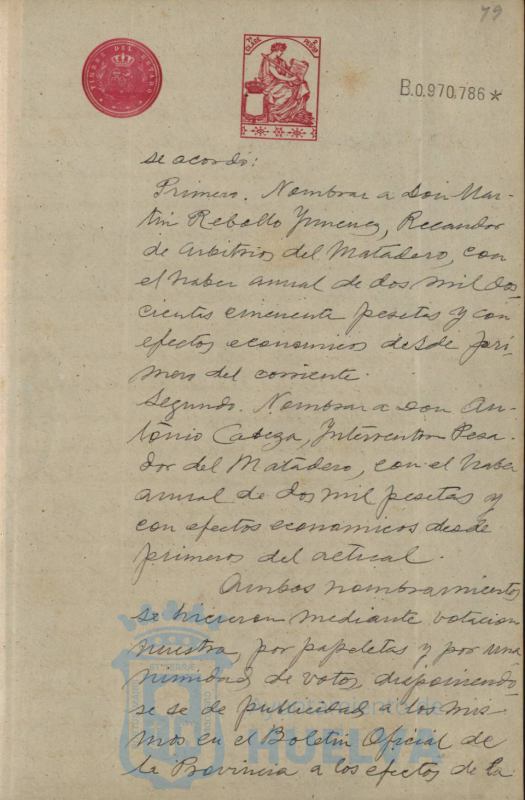 79
TIMBRE DEL ESTADO
7ª CLASE
2 PESETAS
B.0.970.786*
se acordó:
Primero. Nombrar a Don Mar-
tin Rebollo Jimenez, Recaudor
de Arbitrios del Matadero, con
el haber anual de dos mil dos-
cientas cincuente pesetas y con
efectos economicos desde pri-
mero del corriente.
Segundo. Nombrar a Don An-
tonio Cabeza, Interventor Pesa-
dor del Matadero, con el haber
anual de dos mil pesetas y
con efectos economicos desde
primeros del actual.
Ambos nombramientos
se hicieron mediante votacion
por papeletas y por una
nimidad de votos, disponiendo-
se se de publicidad a los mis-
mos en el Boletin Oficial de
la Provincia a los efectos de la
Ayuntamiento de
HUELVA